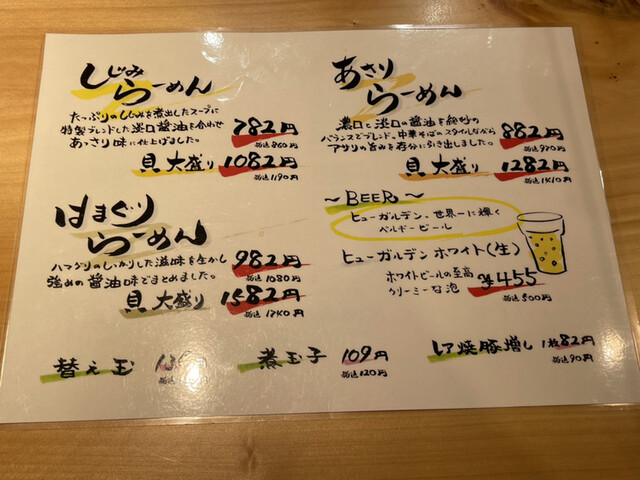 しじみ
らーめん
たっぷりのしじみを煮出したスープに
特製ブレンドした淡口醤油を合わせ
あっさり味に仕上げました。
782円
税込860円
貝大盛り 1082円
税込1190円
はまぐり
らーめん
ハマグリのしっかりした滋味を生かし
強めの醤油味でまとめました。
982円
税込1080円
貝大盛り 1582円
税込1740円
あさり
らーめん
濃口と淡口の醤油を絶妙の
バランスでブレンド。中華そばのスタイルながら
アサリの旨みを存分に引き出しました。
882円
税込970円
貝大盛り 1282円
税込1410円
～BEER～
ヒューガルデン、世界一に輝く
ベルギービール
ヒューガルデンホワイト(生)
ホワイトビールの至高
クリーミーな泡
¥455
税込500円
替え玉
煮玉子 109円
税込120円
レア焼豚増し 1枚82円
税込90円